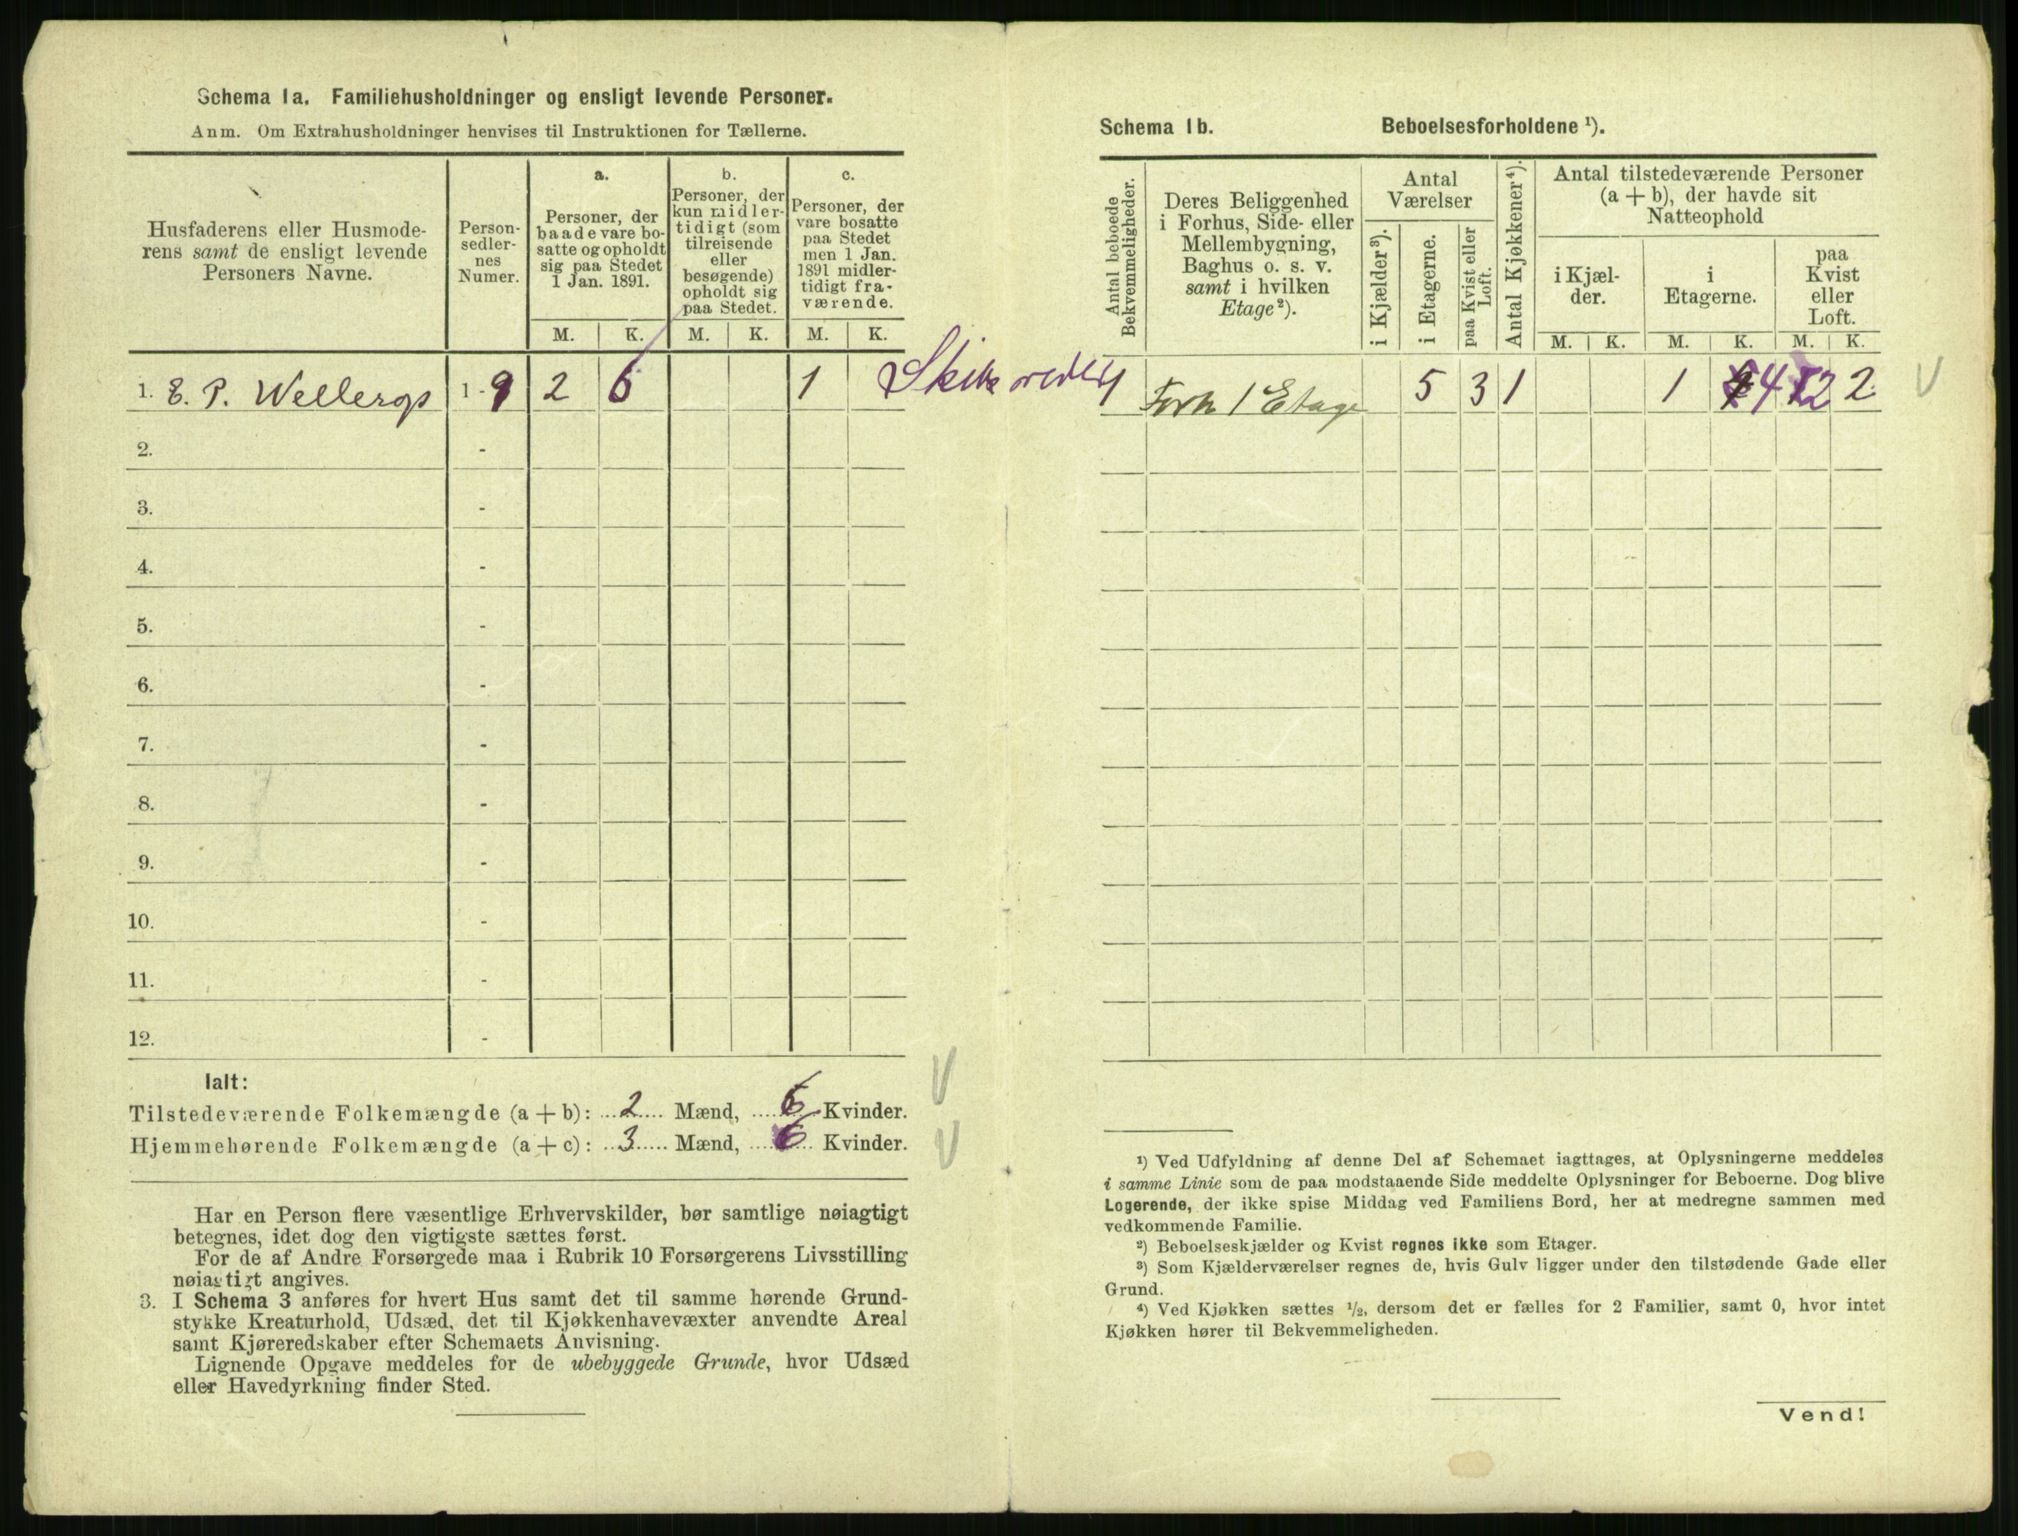 Schema 1a. Familiehusholdninger og ensligt levende Personer.
Anm. Om Extrahusholdninger henvises til Instruktionen for Tællerne.
Husfaderens eller Husmode-
rens samt de ensligt levende
Personers Navne.
Person-
sedler-
nes
Numer.
a.
Personer, der
baade vare bo-
satte og opholdt
sig paa Stedet
1 Jan. 1891.
b.
Personer, der
kun midler-
tidigt (som
tilreisende
eller
besøgende)
opholdt sig
paa Stedet.
c.
Personer, der
vare bosatte
paa Stedet
men 1 Jan.
1891 midler-
tidigt fra-
værende.
M. K. M. K. M. K.
1. E. P. Wellerops 1-9 2 6 1
2. -
3. -
4. -
5. -
6. -
7. -
8. -
9. -
10. -
11. -
12. -
Ialt:
Tilstedeværende Folkemængde (a + b): 2 Mænd, 6 Kvinder.
Hjemmehørende Folkemængde (a + c): 3 Mænd, 6 Kvinder.
Har en Person flere væsentlige Erhvervskilder, bør samtlige nøiagtigt
betegnes, idet dog den vigtigste sættes først.
For de af Andre Forsørgede maa i Rubrik 10 Forsørgerens Livsstilling
nøiagtigt angives.
3. I Schema 3 anføres for hvert Hus samt det til samme hørende Grund-
stykke Kreaturhold, Udsæd, det til Kjøkkenhavevæxter anvendte Areal
samt Kjøreredskaber efter Schemaets Anvisning.
Lignende Opgave meddeles for de ubebyggede Grunde, hvor Udsæd
eller Havedyrkning finder Sted.
Schema 1b. Beboelsesforholdene ¹).
Antal beboede
Bekvemmeligheder.
Deres Beliggenhed
i Forhus, Side- eller
Mellembygning,
Baghus o. s. v.
samt i hvilken
Etage²).
Antal
Værelser
i Kjælder³).
i Etagerne.
paa Kvist eller
Loft.
Antal Kjøkkener⁴).
Antal tilstedeværende Personer
(a + b), der havde sit
Natteophold
i Kjæl-
der.
i
Etagerne.
paa
Kvist
eller
Loft.
M. K. M. K. M. K.
1 Forh 1 Etage 5 3 1 1 4 2 2
¹) Ved Udfyldning af denne Del af Schemaet iagttages, at Oplysningerne meddeles
i samme Linie som de paa modstaaende Side meddelte Oplysninger for Beboerne. Dog blive
Logerende, der ikke spise Middag ved Familiens Bord, her at medregne sammen med
vedkommende Familie.
²) Beboelseskjælder og Kvist regnes ikke som Etager.
³) Som Kjælderværelser regnes de, hvis Gulv ligger under den tilstødende Gade eller
Grund.
⁴) Ved Kjøkken sættes ½, dersom det er fælles for 2 Familier, samt 0, hvor intet
Kjøkken hører til Bekvemmeligheden.
Vend!